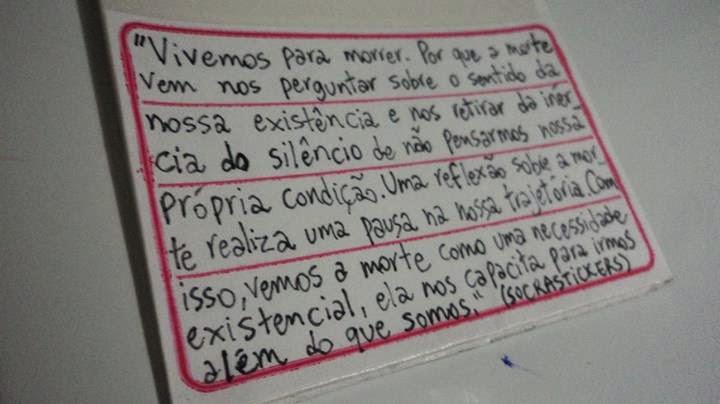 "Vivemos para morrer. Por que a morte
vem nos perguntar sobre o sentido da
nossa existência e nos retirar da inér_
cia do silêncio de não pensarmos nossa
própria condição. Uma reflexão sobre a mor_
te realiza uma pausa na nossa trajetória. Com
isso, vemos a morte como uma necessidade
existencial, ela nos capacita para irmos
além do que somos." (SOCRASTICKERS)